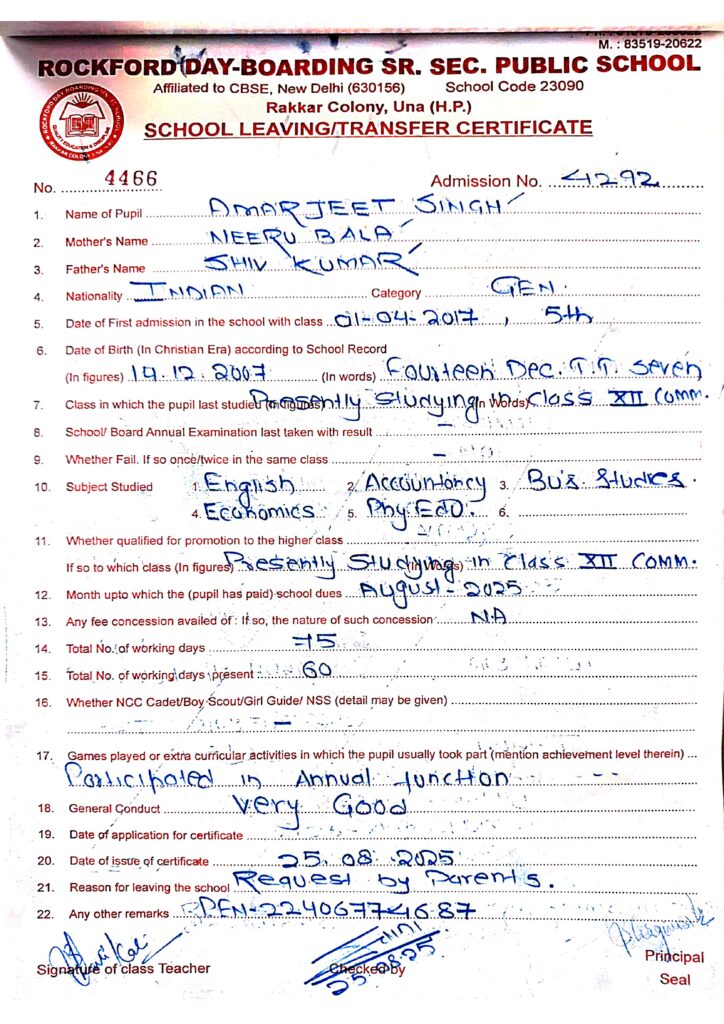 M. : 83519-20622
ROCKFORD DAY-BOARDING SR. SEC. PUBLIC SCHOOL
Affiliated to CBSE, New Delhi (630156) School Code 23090
Rakkar Colony, Una (H.P.)
SCHOOL LEAVING/TRANSFER CERTIFICATE
No. 4466 Admission No. 4292
1. Name of Pupil AMARJEET SINGH
2. Mother's Name NEERU BALA
3. Father's Name SHIV KUMAR
4. Nationality INDIAN Category GEN.
5. Date of First admission in the school with class 01-04-2017, 5th
6. Date of Birth (In Christian Era) according to School Record
(In figures) 14.12.2007 (In words) Fourteen Dec. T.T. Seven
7. Class in which the pupil last studied (In figures) (In Words) Presently Studying in Class XII COMM.
8. School/ Board Annual Examination last taken with result -
9. Whether Fail. If so once/twice in the same class -
10. Subject Studied 1. English 2. Accountancy 3. Bus. Studies.
4. Economics 5. Phy. Edu. 6.
11. Whether qualified for promotion to the higher class
If so to which class (In figures) (In Words) Presently Studying in Class XII COMM.
12. Month upto which the (pupil has paid) school dues August-2025
13. Any fee concession availed of : If so, the nature of such concession N.A
14. Total No. of working days 75
15. Total No. of working days present 60
16. Whether NCC Cadet/Boy Scout/Girl Guide/ NSS (detail may be given)
-
17. Games played or extra curricular activities in which the pupil usually took part (mention achievement level therein)
Participated in Annual function
18. General Conduct Very Good
19. Date of application for certificate
20. Date of issue of certificate 25.08.2025
21. Reason for leaving the school Request by Parents.
22. Any other remarks PEN-22406774687
Signature of class Teacher Checked by Principal
25.08.25 Seal